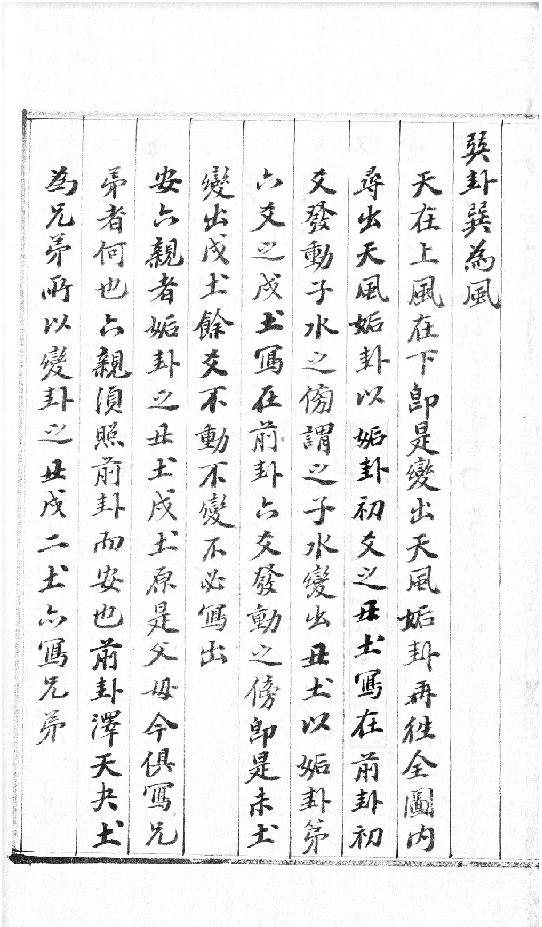 巽卦巽為風
天在上風在下即是變出天風姤卦再徃全圖内
尋出天風姤卦以姤卦初爻之丑土寫在前卦初
爻發動子水之傍謂之子水變出丑土以姤卦第
六爻之戌土寫在前卦六爻發動之傍即是未土
變出戌土餘爻不動不變不必寫出
安六親者姤卦之丑土戌土原是父母今俱寫兄
弟者何也六親須照前卦而安也前卦澤天夬土
為兄弟所以變卦之丑戌二土六寫兄弟